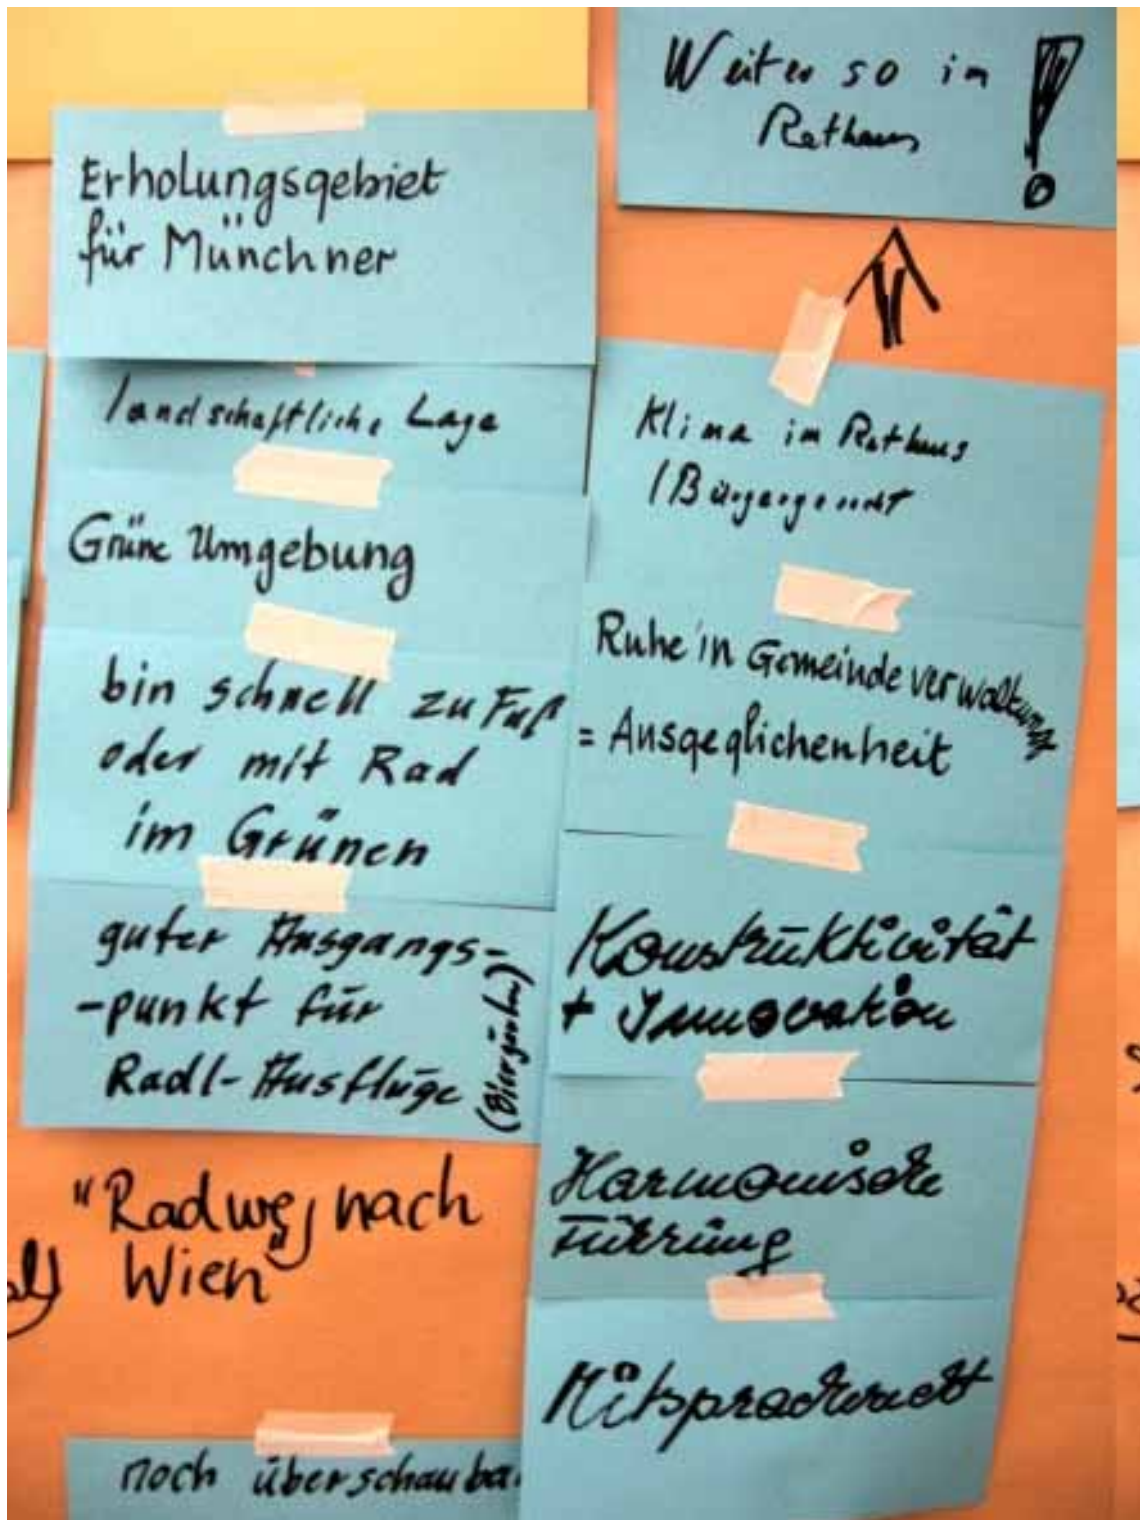 Erholungsgebiet
für Münchner
landschaftliche Lage
Grüne Umgebung
bin schnell zu Fuß
oder mit Rad
im Grünen
guter Ausgangs-
-punkt für
Radl-Ausflüge
(Biergärten)
"Radweg nach
Wien"
noch überschaubar
Weiter so im
Rathaus !
Klima im Rathaus
Ruhe in Gemeindeverwaltung
= Ausgeglichenheit
Konstruktivität
+ Innovation
Harmonische
Führung
Mitspracherecht